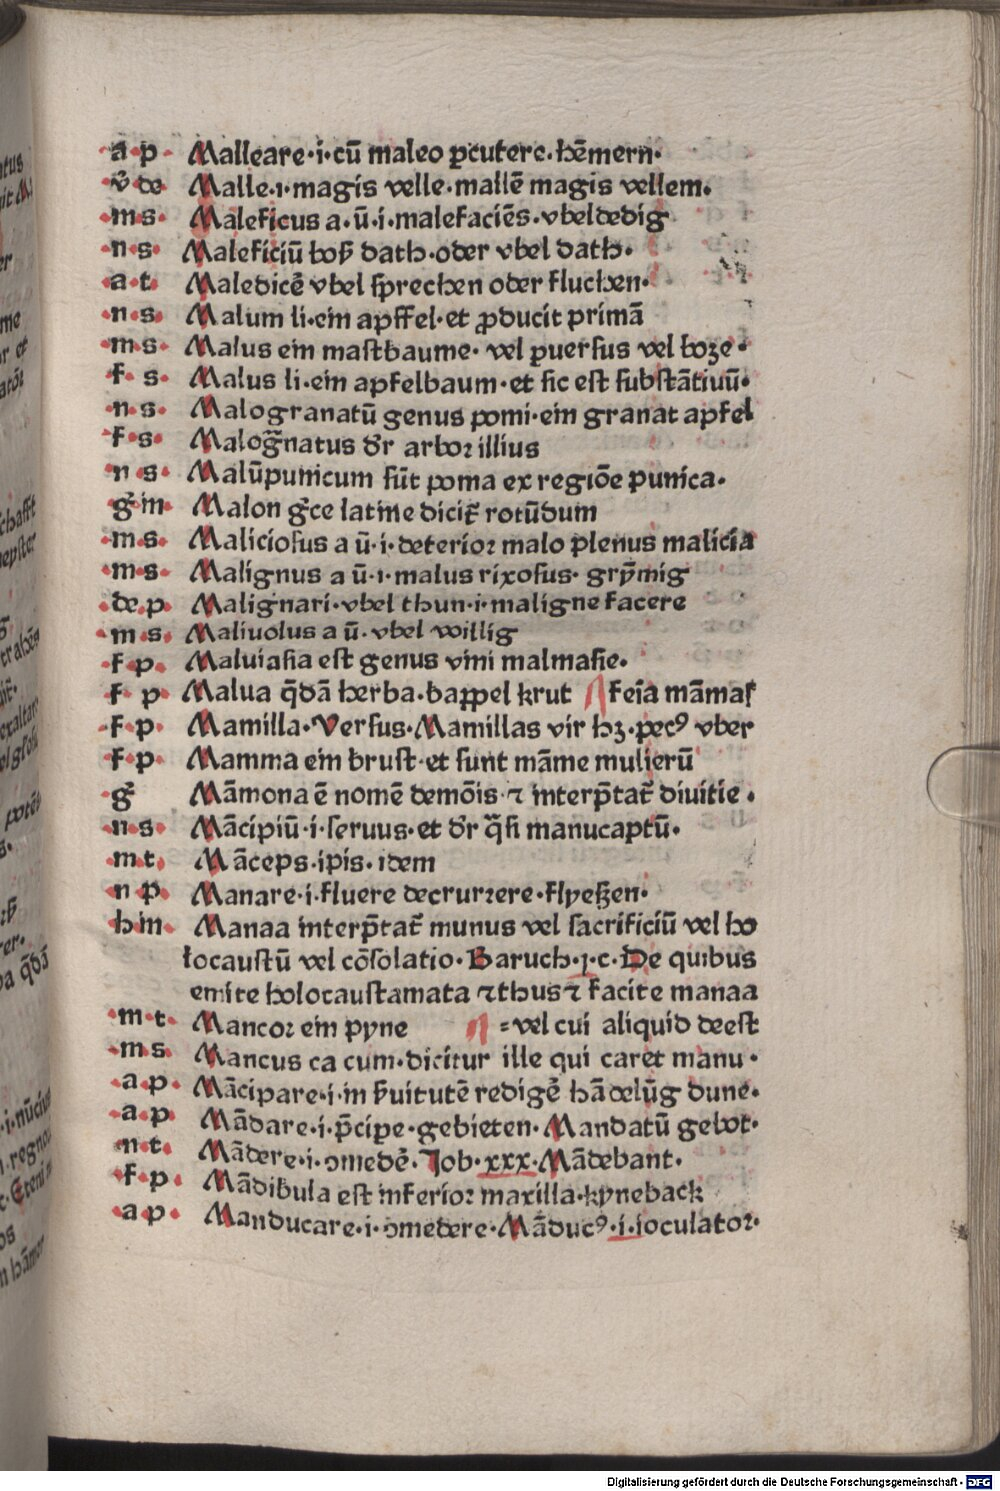 a p Malleare·i·cū maleo ꝑcutere·hēmern·
v̄ de Malle·i·magis velle·mallē magis vellem·
m s Maleficus a·ū·i·malefaciēs·vbeldedig
n s Maleficiū boß dath·oder vbel dath·
a t Maledicē vbel sprechen oder fluchen·
n s Malum li·ein apffel·et ꝓducit primā
m s Malus ein mastbaume·vel ꝑuersus vel boze·
f s Malus li·ein apfelbaum·et sic est substātiuū·
n s Malogranatū genus pomi·ein granat apfel
f s Malogr̄natus dr̄ arbor illius
n s Malūpunicum sūt poma ex regiōe punica·
ḡ in Malon gr̄ce latine dicit̄ rotūdum
m s Maliciosus a ū·i·deterior malo plenus malicia
m s Malignus a ū·i·malus rixosus·grȳmig
de p Malignari·vbel thun·i·maligne facere
m s Maliuolus a ū·vbel willig
f p Maluiasia est genus vini malmasie·
f p Malua q̄dā herba·bappel krut feīa māmas
f p Mamilla·Versus·Mamillas vir hꝫ·pecꝰ vber
f p Mamma ein brust·et sunt māme mulierū
ḡ Māmona ē nomē demōis·⁊ interp̄tat̄ diuitie·
n s Mācipiū·i·seruus·et dr̄ q̄si manucaptū·
m t Māceps·ipis·idem
n p Manare·i·fluere decurrere·flyeßen·
h in Manaa interp̄tat̄ munus vel sacrificiū vel ho
locaustū vel cōsolatio·Baruch·j·c·De quibus
emite holocaustamata ⁊thus⁊ facite manaa
m t Mancor ein pyne =vel cui aliquid deest
m s Mancus ca cum·dicitur ille qui caret manu·
a p Mācipare·i·in ẜuitutē redigē hādelūg dune·
a p Mādare·i·p̄cipe·gebieten·Mandatū gebot·
n t Mādere·i·ↄmedē·Job·xxx·Mādebant·
f p Mādibula est inferior maxilla·kyneback
a p Manducare·i·ↄmedere·Māducꝰ·i·ioculator·
Digitalisierung gefördert durch die Deutsche Forschungsgemeinschaft - DFG